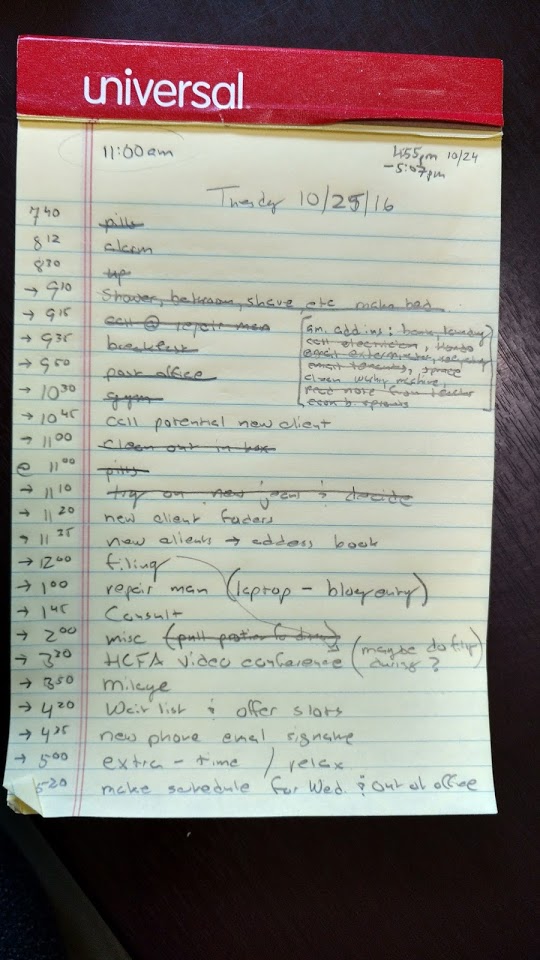 universal
11:00am
4:55pm 10/24
- 5:07pm
Tuesday 10/25/16
7 40 pills
8 12 alarm
8 30 up
→ 9 10 Shower, bathroom, shave, etc make bed
→ 9 15 call @ repair man
→ 9 35 breakfast
→ 9 50 post office
→ 10 30 gym
→ 10 45 call potential new client
→ 11 00 clean out in box
e 11 00 pills
→ 11 10 try on new jeans & decide
→ 11 20 new client folders
→ 11 35 new clients → address book
→ 12 00 filing
→ 1 00 repair man (laptop - blog entry)
→ 1 45 Consult
→ 2 00 misc
→ 3 30 HCFA video conference (maybe do
during?
→ 3 50 mileage
→ 4 20 Wait list & offer slots
→ 4 35 new phone email signature
→ 5 00 extra-time / relax
5 20 make schedule for Wed. & out of office
am. add ins:
call electrician,
email exterminator,
email tenants, space
clean washing machine,
read note from teacher